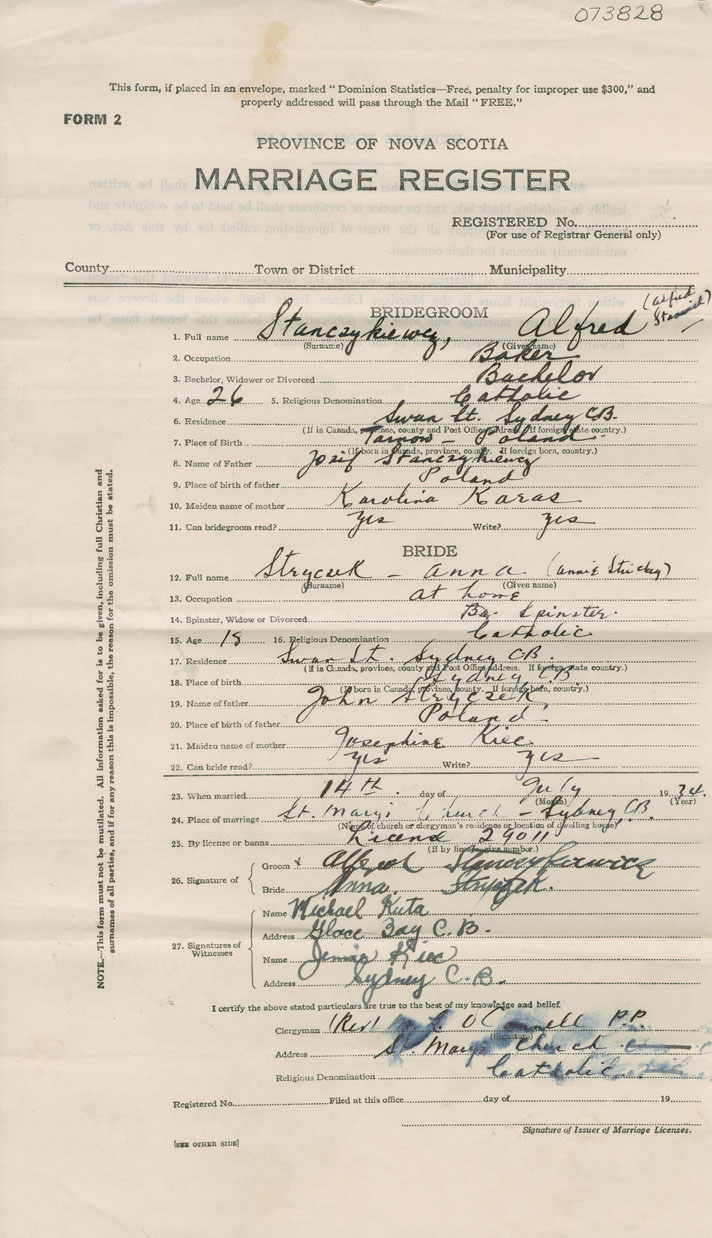 073828
This form, if placed in an envelope, marked "Dominion Statistics—Free, penalty for improper use $300," and
properly addressed will pass through the Mail "FREE."
FORM 2
PROVINCE OF NOVA SCOTIA
MARRIAGE REGISTER
REGISTERED No.
(For use of Registrar General only)
County Town or District Municipality
BRIDEGROOM (Alfred
1. Full name Stanczykiewcz, Alfred
(Surname) (Given name)
2. Occupation Baker
3. Bachelor, Widower or Divorced Bachelor
4. Age 26 5. Religious Denomination Catholic
6. Residence Swan St. Sydney CB.
(If in Canada, province, county and Post Office address. If foreign state country.)
7. Place of Birth Tarnow - Poland
(If born in Canada, province, county. If foreign born, country.)
8. Name of Father Jozif Stanczykiewcz
9. Place of birth of father Poland
10. Maiden name of mother Karolina Karas
11. Can bridegroom read? yes Write? yes
BRIDE
12. Full name Stryczek - Anna (Annie Strickey)
(Surname) (Given name)
13. Occupation at home
14. Spinster, Widow or Divorced Ba. Spinster.
15. Age 18 16. Religious Denomination Catholic
17. Residence Swan St. Sydney CB.
(If in Canada, province, county and Post Office address. If foreign state country.)
18. Place of birth Sydney C.B.
(If born in Canada, province, county. If foreign born, country.)
19. Name of father John Stryczek
20. Place of birth of father Poland
21. Maiden name of mother Josephine Kiec
22. Can bride read? yes Write? yes
23. When married 14th. day of July 19 34.
(Month) (Year)
24. Place of marriage St. Mary's Church - Sydney CB.
(Name of church or clergyman's residence or location of dwelling house)
25. By license or banns License 29011
(If by license give number.)
26. Signature of Groom x Alfred
Bride Anna
27. Signatures of Witnesses
Name Michael Kuta
Address Glace Bay C.B.
Name Jennie Kiec
Address Sydney C.B.
I certify the above stated particulars are true to the best of my knowledge and belief.
Clergyman (Rev) P.P.
(Signature)
Address St. Mary's Church
Religious Denomination Catholic
Registered No. Filed at this office day of 19
Signature of Issuer of Marriage Licenses.
[SEE OTHER SIDE]
NOTE.—This form must not be mutilated. All information asked for is to be given, including full Christian and
surnames of all parties, and if for any reason this is impossible, the reason for the omission must be stated.